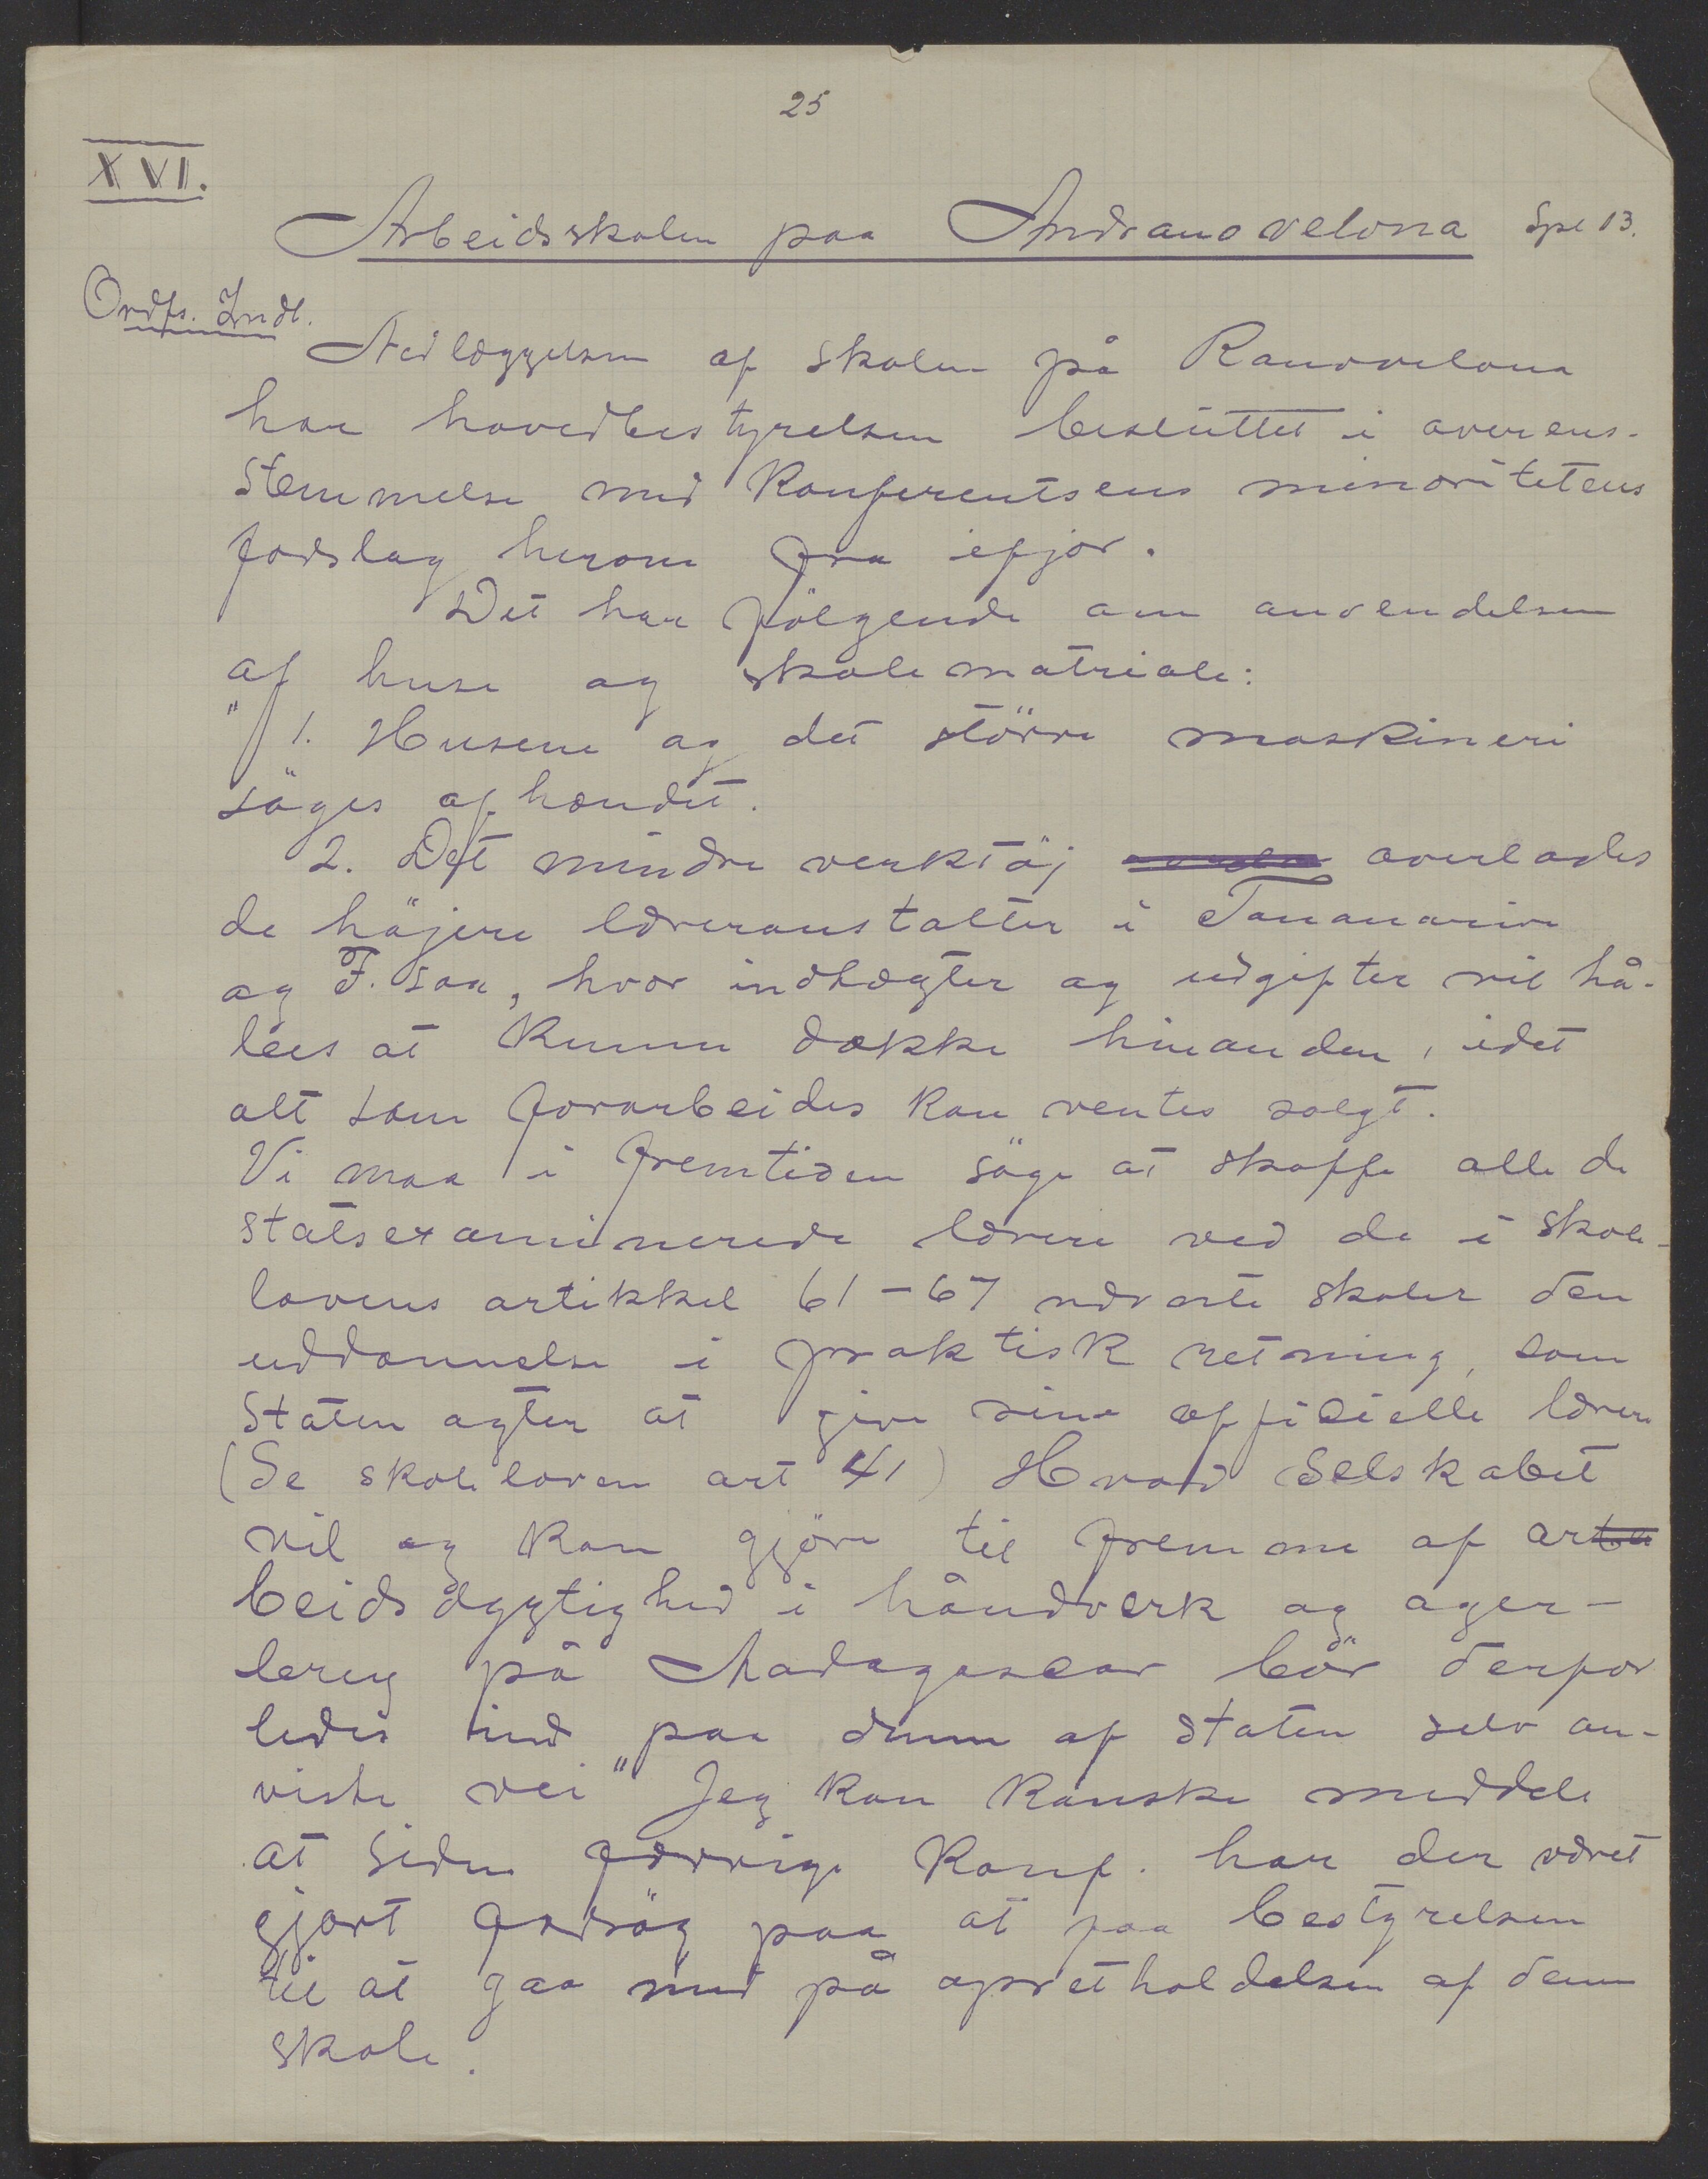 25
XVI.
Arbeidsskolen paa Andranovelona Spl 13.
Ordfs. Indl.
Nedlæggelsen af skolen på Ranovelona
har hovedbestyrelsen besluttet i overens-
stemmelse med Konferentsens minoritetens
forslag herom fra ifjor.
Det har følgende om anvendelsen
af huse og skolematriale:
"1. Husene og det större maskineri
söges afhændet.
2. Det mindre verktöj overlades
de höjere læreranstalter i Tananarive
og F.soa, hvor indtægter og udgifter vil hå-
bes at kunne dække hinanden, idet
alt som forarbeides kan ventes solgt.
Vi maa i fremtiden söge at skaffe alle de
statsexaminerede lærere ved de i skole-
lovens artikkel 61-67 nævnte skoler den
uddannelse i praktisk retning, som
Staten agter at give sine officielle lærere
(Se skoleloven art 41) Hvad Selskabet
vil og kan gjöre til fremme af ar
beidsdygtighed i håndverk og ager-
brug på Madagascar bör derfor
ledes ind paa denne af staten selv an-
viste vei" Jeg kan kanske meddele
at siden forrige Konf. har der været
gjort forsög paa at faa bestyrelsen
til at gaa med på opretholdelsen af denne
skole.